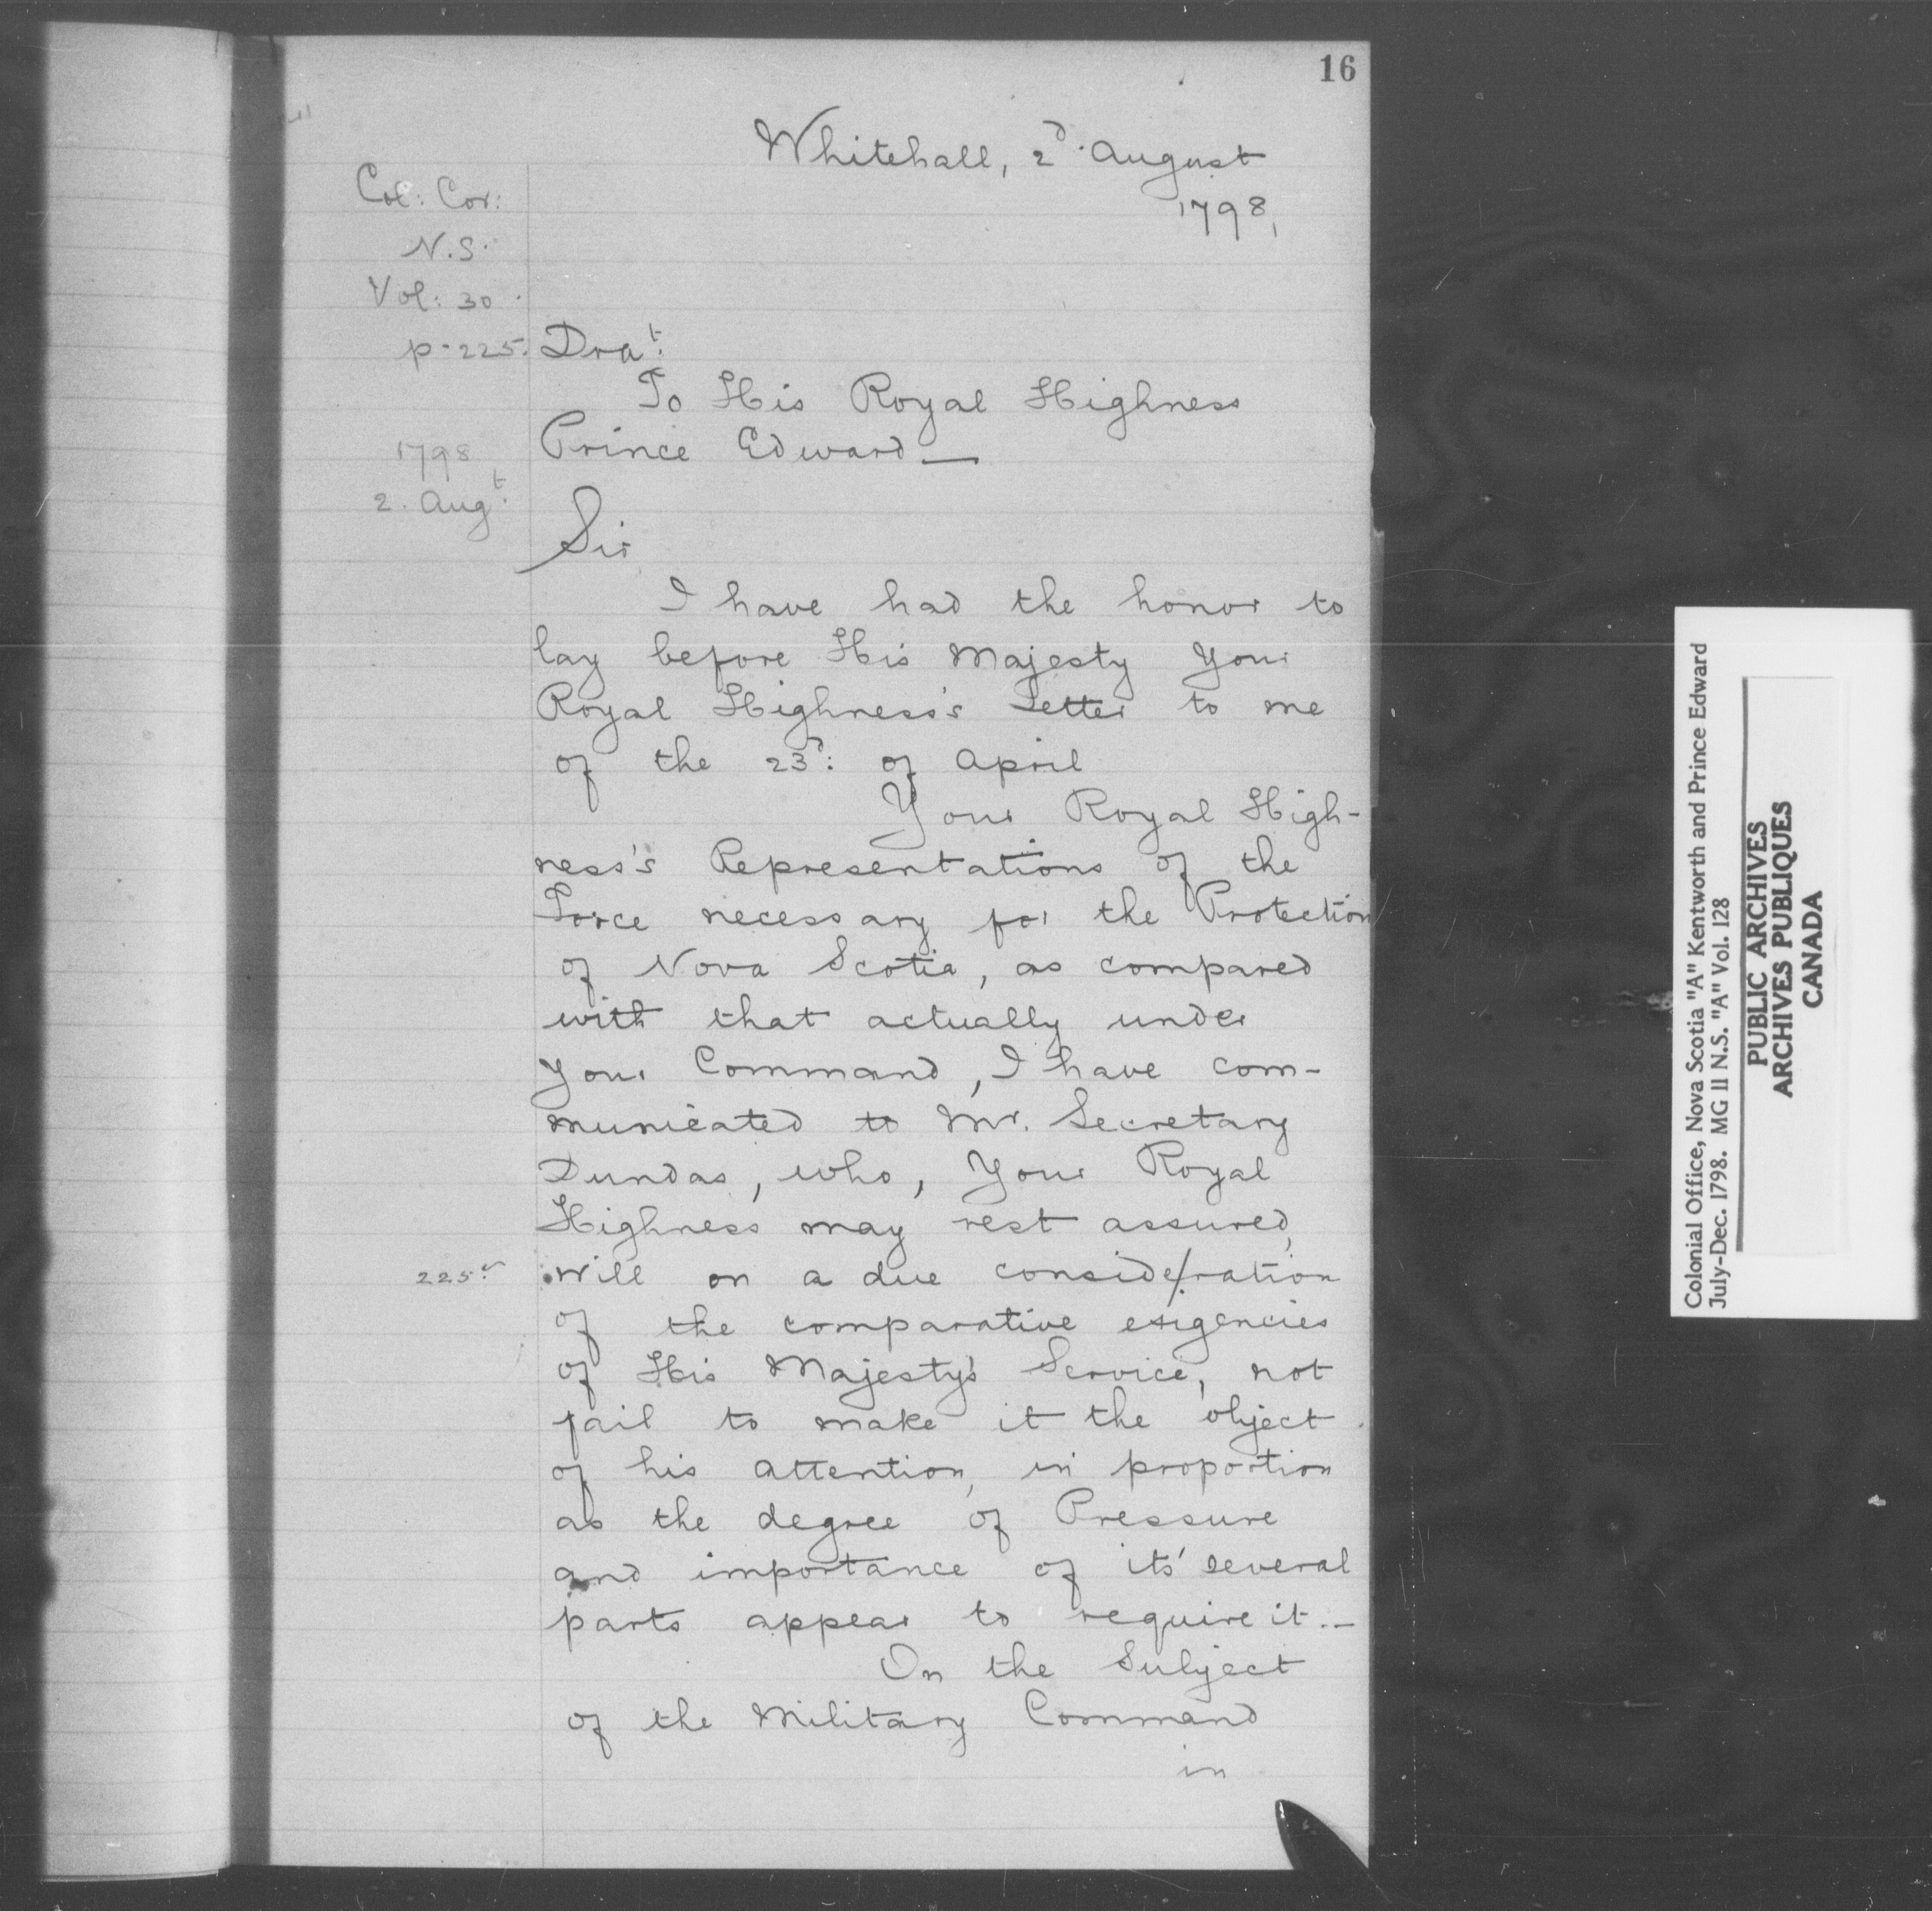 16
Whitehall, 2d. August
1798,
Col: Cor:
N.S.
Vol: 30
p. 225.
Drat.
To His Royal Highness
Prince Edward —
1798
2. Augt.
Sir
I have had the honor to
lay before His Majesty Your
Royal Highness's Letter to me
of the 23d: of April
Your Royal High-
ness's Representations of the
Force necessary for the Protection
of Nova Scotia, as compared
with that actually under
Your Command, I have com-
municated to Mr. Secretary
Dundas, who, Your Royal
Highness may rest assured,
225v
will on a due conside/ration
of the comparative exigencies
of His Majesty's Service, not
fail to make it the object
of his attention, in proportion
as the degree of Pressure
and importance of its' several
parts appear to require it.—
On the Subject
of the Military Command
in
Colonial Office, Nova Scotia "A" Kentworth and Prince Edward
July-Dec. 1798. MG 11 N.S. "A" Vol. 128
PUBLIC ARCHIVES
ARCHIVES PUBLIQUES
CANADA